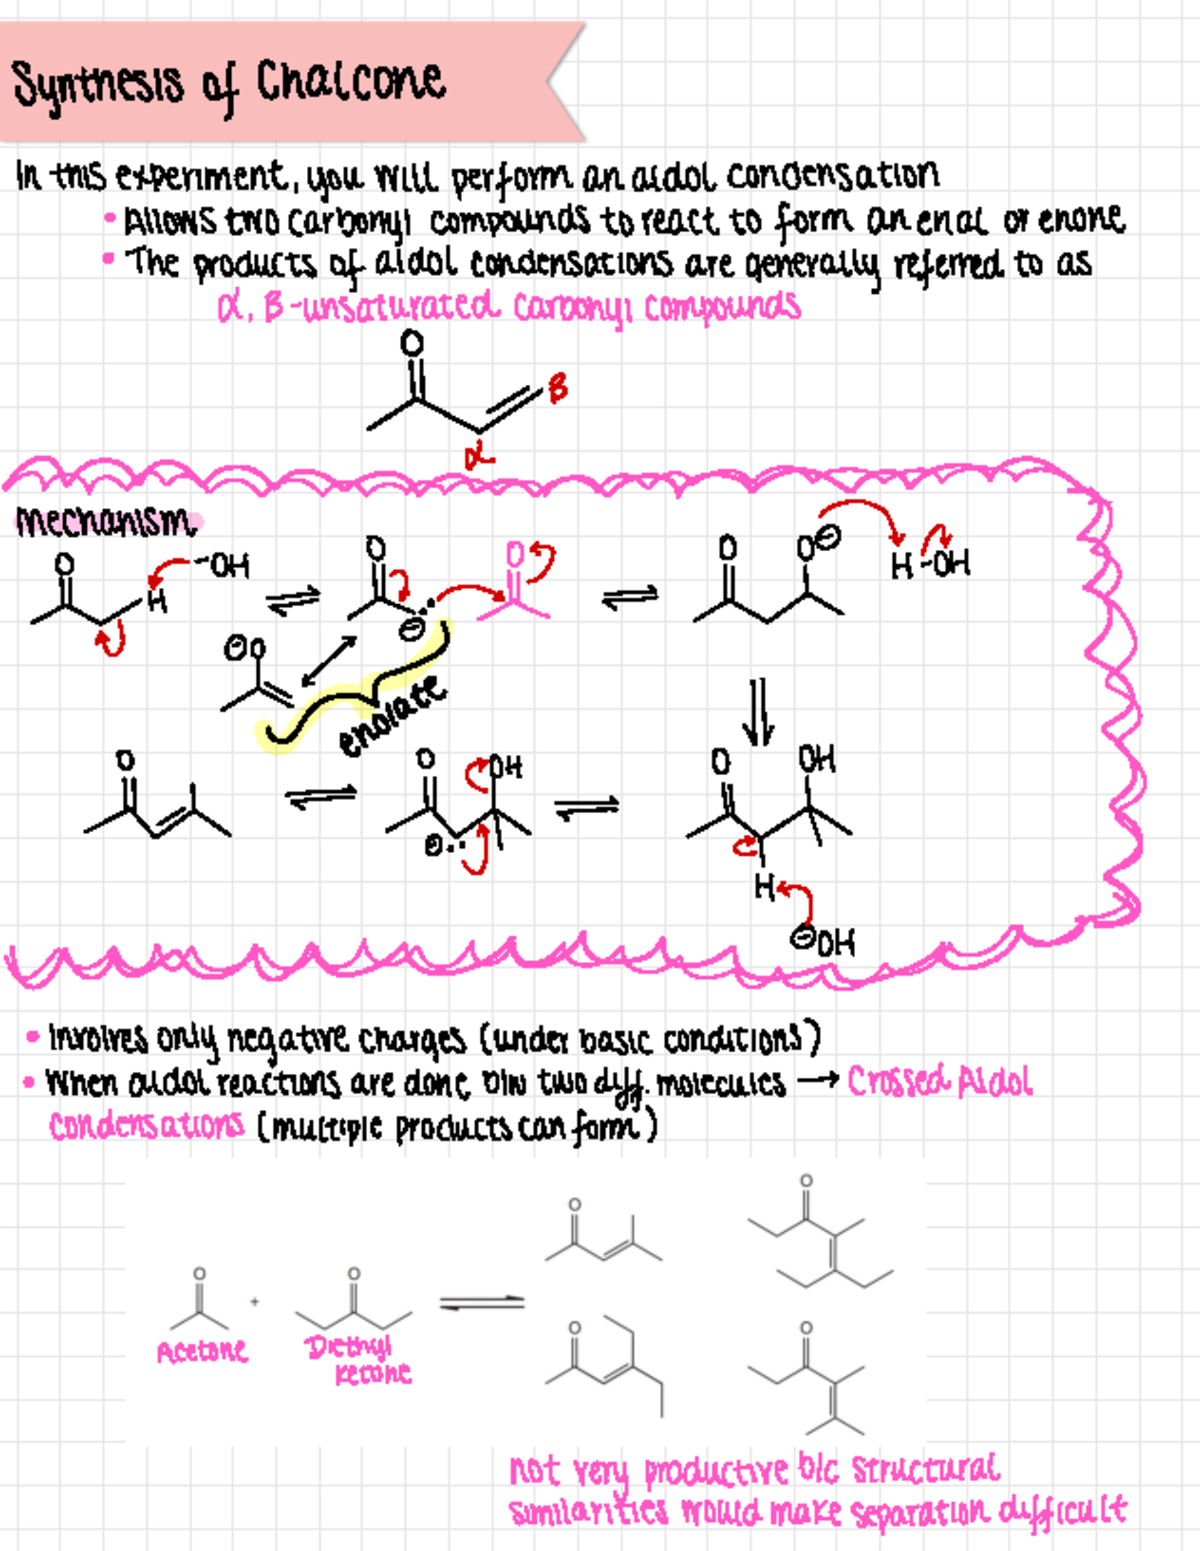 Synthesis of Chalcone
In this experiment, you will perform an aldol condensation
• Allows two carbonyl compounds to react to form an enal or enone
• The products of aldol condensations are generally referred to as
α, β-unsaturated carbonyl compounds
O
β
α
mechanism
O O O O O⊖
H -OH H-OH
⊖
⊖O
enolate
O O OH O OH
⊖
H
⊖OH
• Involves only negative charges (under basic conditions)
• When aldol reactions are done b/w two diff. molecules → Crossed Aldol
condensations (multiple products can form)
O O
O O
+
Acetone Diethyl
ketone
O O
not very productive b/c structural
similarities would make separation difficult